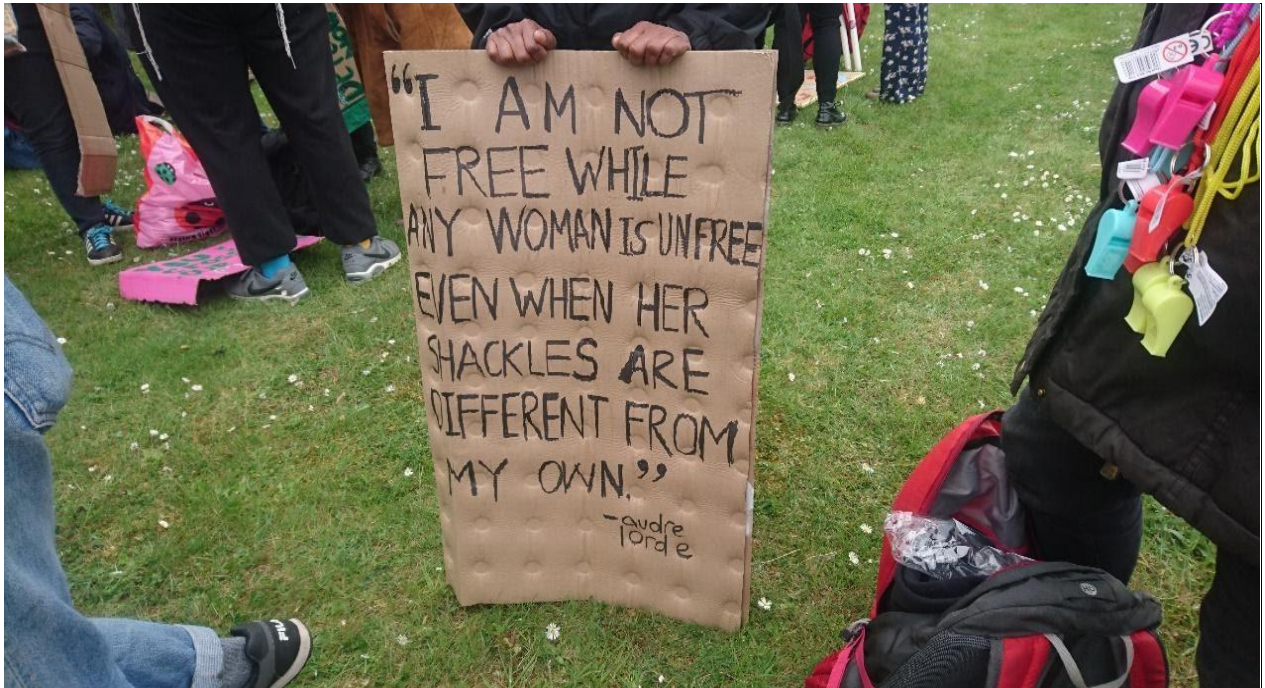 “I AM NOT
FREE WHILE
ANY WOMAN IS UNFREE
EVEN WHEN HER
SHACKLES ARE
DIFFERENT FROM
MY OWN.”
- audre
lorde